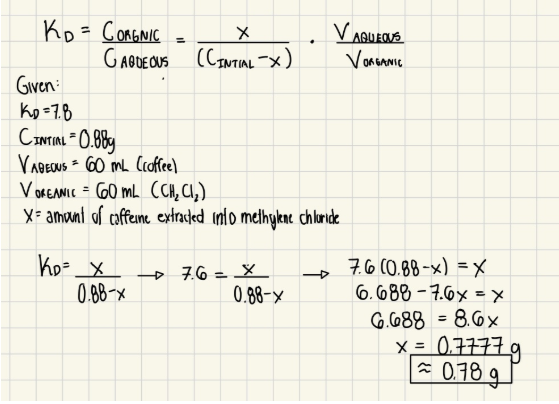 K_D = C_ORGNIC / C_AQUEOUS = x / (C_INTIAL - x) · V_AQUEOUS / V_ORGANIC
Given:
K_D = 7.8
C_INTIAL = 0.88g
V_AQEOUS = 60 mL (coffee)
V_ORGANIC = 60 mL (CH₂Cl₂)
X = amount of caffeine extracted into methylene chloride
K_D = x / 0.88-x → 7.6 = x / 0.88-x → 7.6 (0.88-x) = x
6.688 - 7.6x = x
6.688 = 8.6x
x = 0.7777 g
≈ 0.78 g